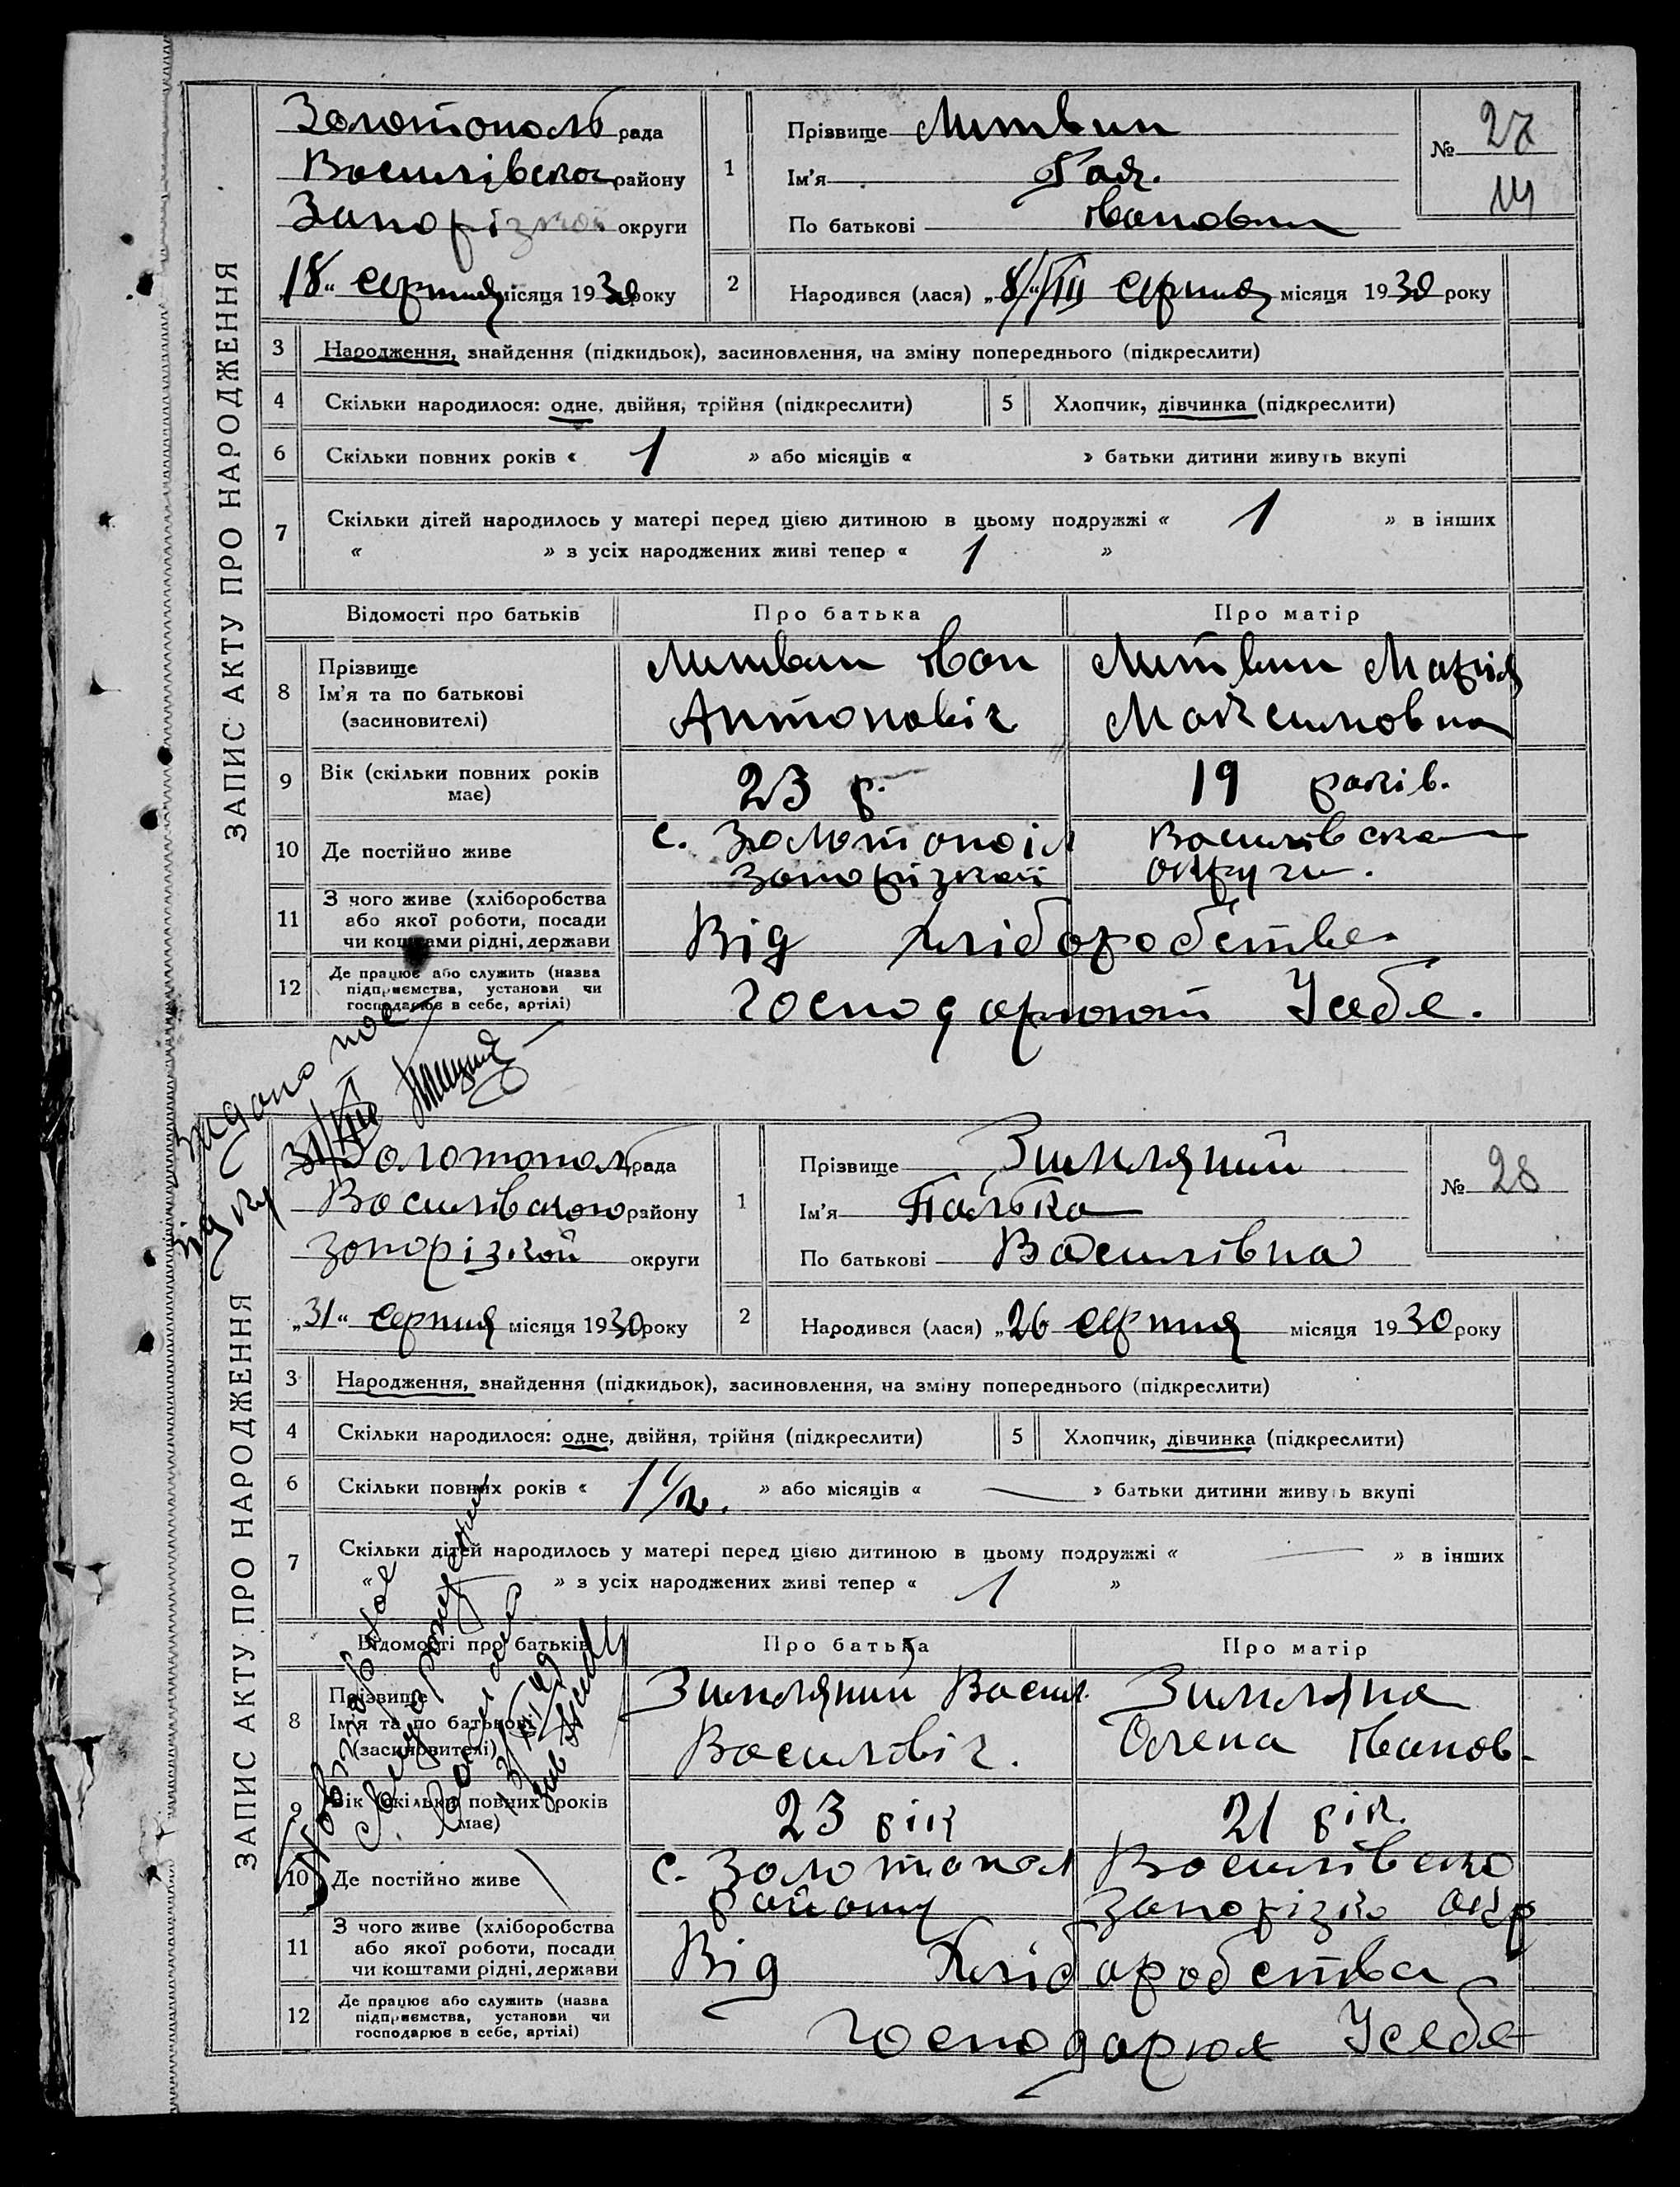 ЗАПИС АКТУ ПРО НАРОДЖЕННЯ
Золотополь рада
Василівског району
Запорізкої округи
„18“ серпня місяця 1930 року
1 Прізвище Литвин
Ім'я Гая.
По батькові Ивановна
№ 27
2 Народився (лася) „8/VIII серпня місяця 1930 року
3 Народження, знайдення (підкидьок), засиновлення, на зміну попереднього (підкреслити)
4 Скільки народилося: одне, двійня, трійня (підкреслити) 5 Хлопчик, дівчинка (підкреслити)
6 Скільки повних років « 1 » або місяців « » батьки дитини живуть вкупі
7 Скільки дітей народилось у матері перед цією дитиною в цьому подружжі « 1 » в інших
« » з усіх народжених живі тепер « 1 »
Відомості про батьків Про батька Про матір
8 Прізвище
Ім'я та по батькові
(засиновителі)
Литвин Иван
Антоновіч
Литвин Марія
Максимовна
9 Вік (скільки повних років
має)
23 р. 19 років.
10 Де постійно живе
с. Золотопіл Василівска
Запорізкой округи.
11 З чого живе (хліборобства
або якої роботи, посади
чи коштами рідні, держави
Від хліборобства
12 Де працює або служить (назва
підприємства, установи чи
господарює в себе, артілі)
Господарюют Усебе.
ЗАПИС АКТУ ПРО НАРОДЖЕННЯ
Золотополь рада
Василівського району
Запорізкой округи
„31“ серпня місяця 1930 року
1 Прізвище Зимляний
Ім'я Палька
По батькові Василівна
№ 28
2 Народився (лася) „26 серпня місяця 1930 року
3 Народження, знайдення (підкидьок), засиновлення, на зміну попереднього (підкреслити)
4 Скільки народилося: одне, двійня, трійня (підкреслити) 5 Хлопчик, дівчинка (підкреслити)
6 Скільки повних років « 1 1/2. » або місяців « — » батьки дитини живуть вкупі
7 Скільки дітей народилось у матері перед цією дитиною в цьому подружжі « — » в інших
« — » з усіх народжених живі тепер « 1 »
Відомості про батьків Про батька Про матір
8 Прізвище
Ім'я та по батькові
(засиновителі)
Зимляний Васил.
Василівіч.
Зимляна
Олена Иванов-
9 Вік (скільки повних років
має)
23 рік 21 рік.
10 Де постійно живе
с. Золотопол Василівско
району запорізко окр
11 З чого живе (хліборобства
або якої роботи, посади
чи коштами рідні, держави
Від Хліборобства
12 Де працює або служить (назва
підприємства, установи чи
господарює в себе, артілі)
Господарюе Усебе